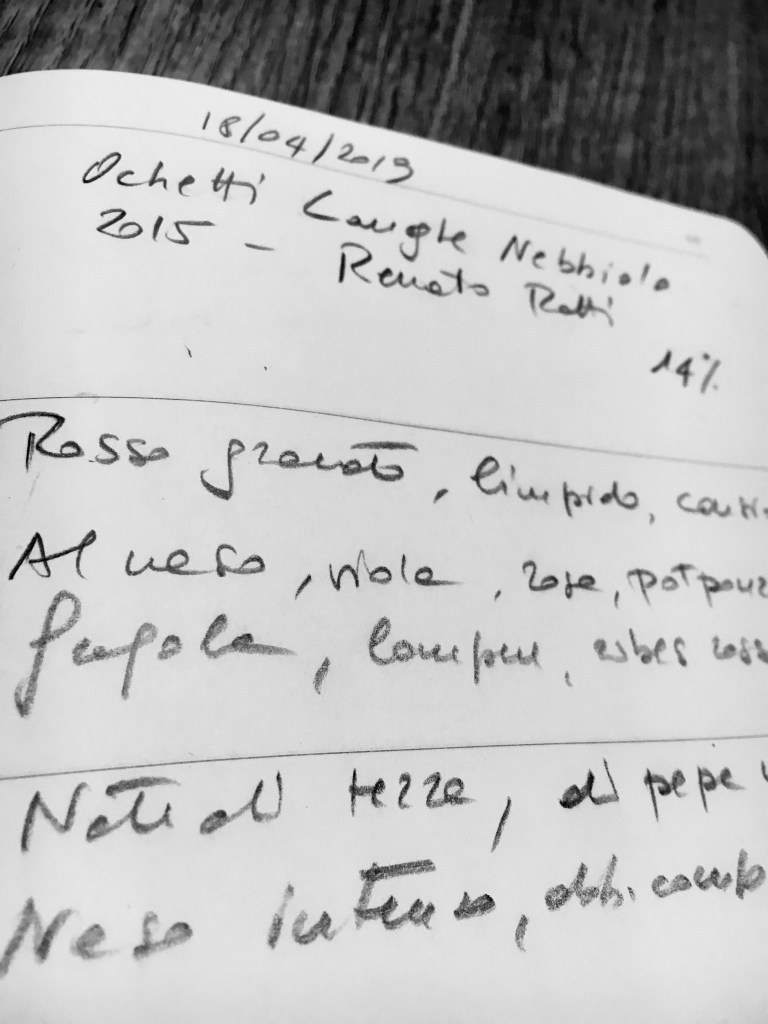 18/04/2019
Ochetti Langhe Nebbiolo
2015 - Renato Ratti
14%
Rosso granato, limpido,
Al naso, viola, rosa,
fragola, lampone, ribes
Note di terra, di pepe
Naso intenso,